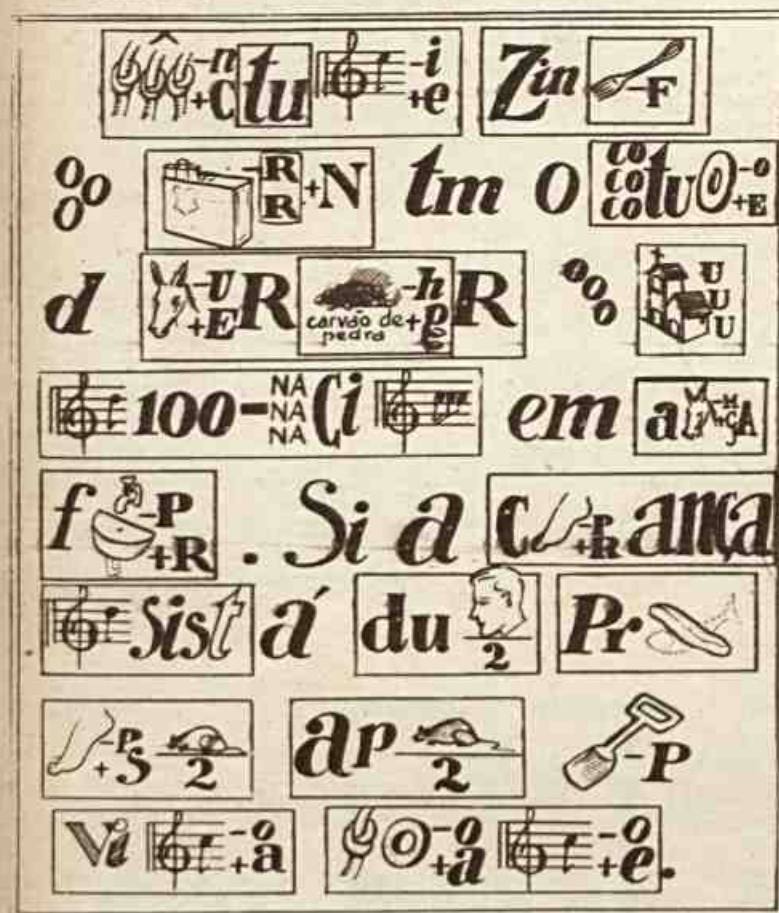 -n +C tu -i +e Zin -F
o o o -R R +N tm O co co co tu -o +E
d -U +E R carvão de pedra -h +g R o o o U U U
100 - NA NA NA Ci em a -M +ÇA
f -P +R . Si a C -P +R ança
Sist á du 2 Pr
-P +S 2 ap 2 -P
Vi -o +a O -o +a -o +e .